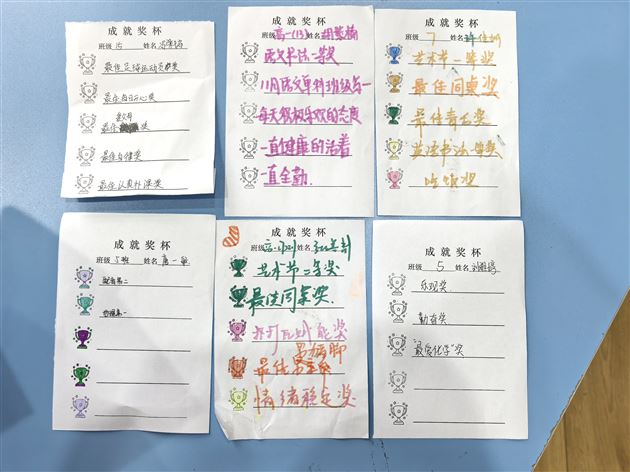 成就奖杯
班级 15 姓名
最佳足球运动员奖
最佳自律奖
最佳认真补课奖
成就奖杯
班级 高一(13) 姓名
语文书法一等奖
11月语文单科班级第一
每天积极乐观的态度
一直健康的活着
一直全勤.
成就奖杯
班级 7 姓名
艺术节一等奖
最佳同桌奖
最佳舍友奖
英语书法一等奖
吃饭奖
成就奖杯
班级 5班 姓名 唐一
成就奖杯
班级 姓名
艺术节二等奖
最佳同桌奖
情绪稳定奖
成就奖杯
班级 5 姓名
乐观奖
勤奋奖
"最爱化学"奖